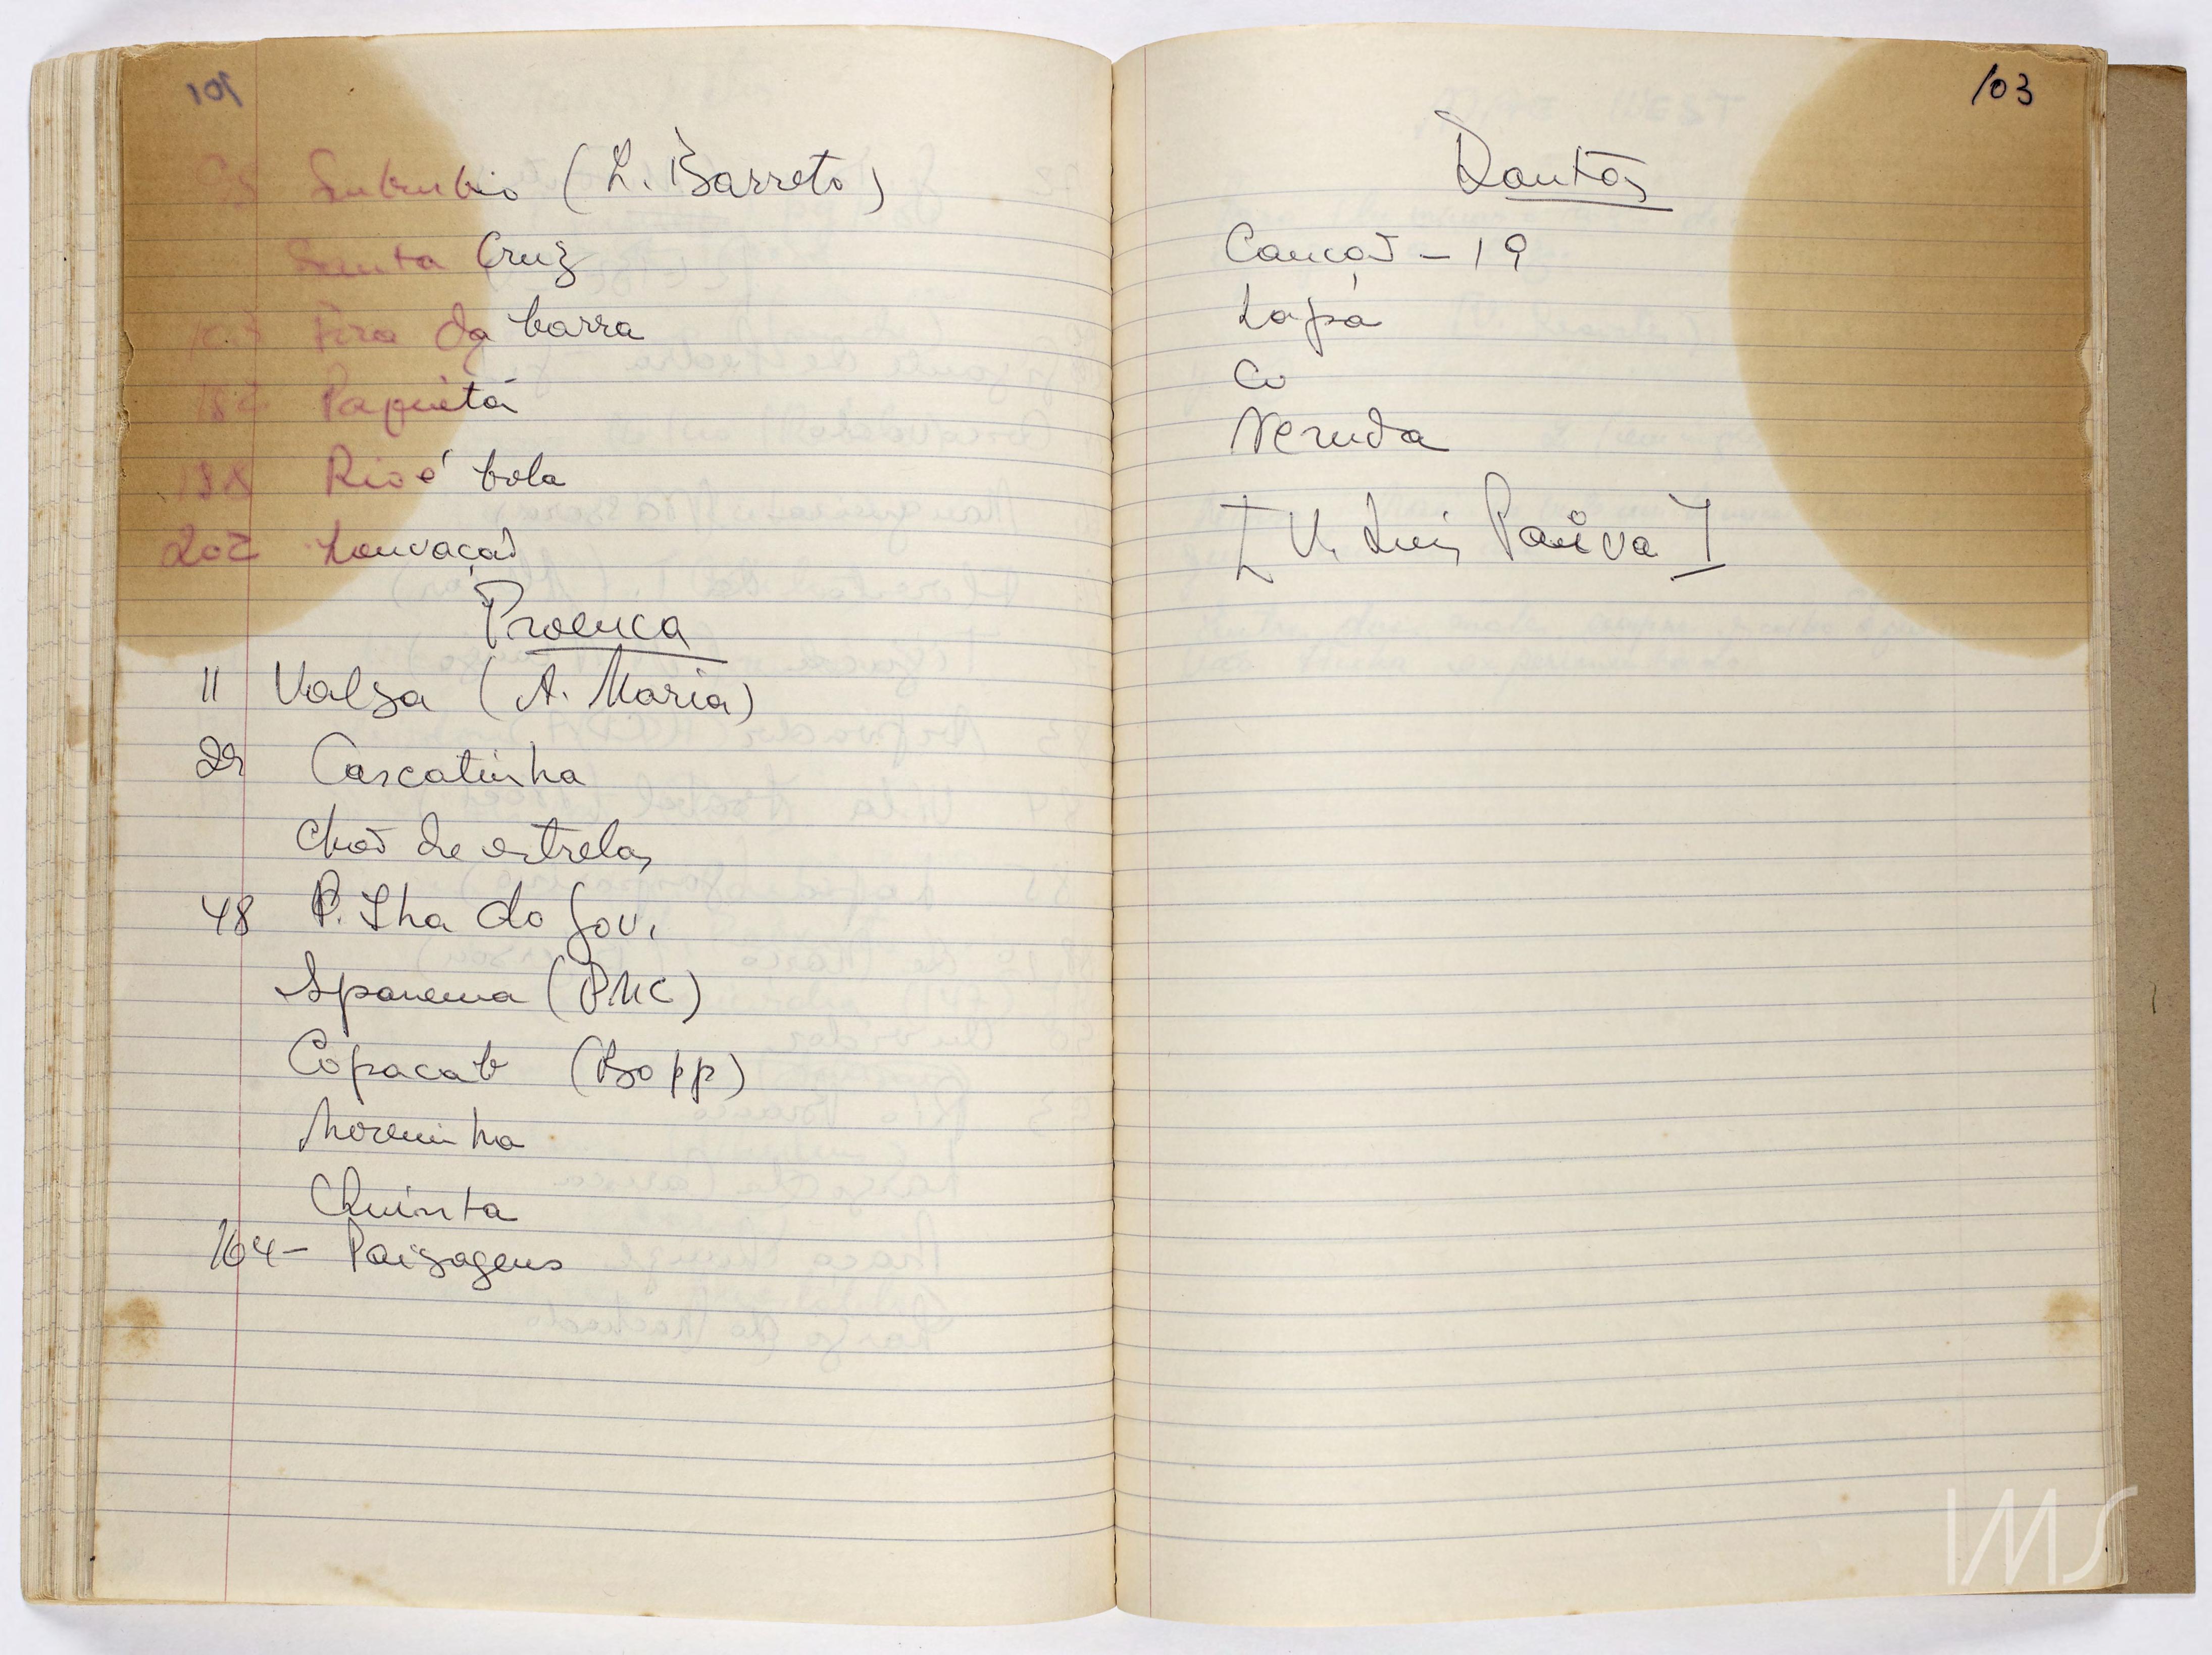 Suburbio (L. Barreto)
Santa Cruz
Fora da barra
Paquetá
Rio é bola
202 Louvação
Proença
11 Valsa (A. Maria)
29 Cascatinha
Chão de estrelas
48 P. Ilha do Gov.
Ipanema (PMC)
Copacab (Bopp)
Moreninha
Quinta
164 - Paisagens
103
Dantas
Canção - 19
Lapa
Neruda
[V. Luis Paiva]
IMS